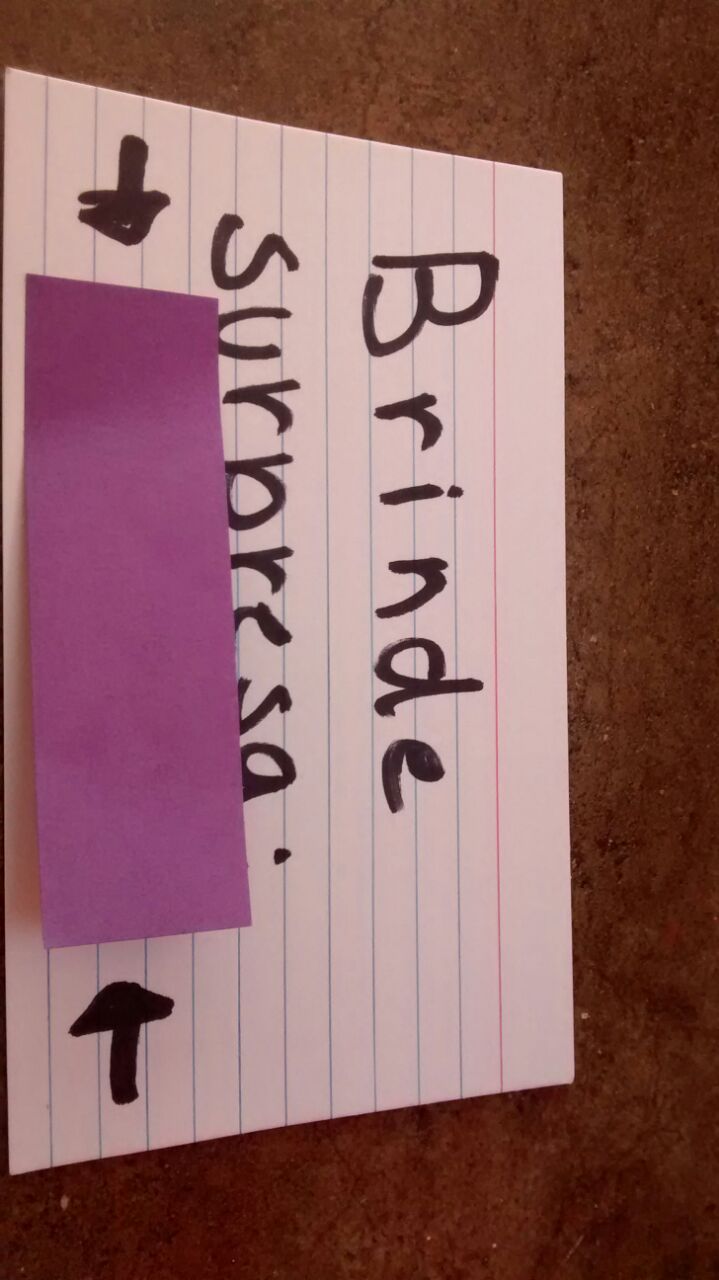 Brinde
surpresa: